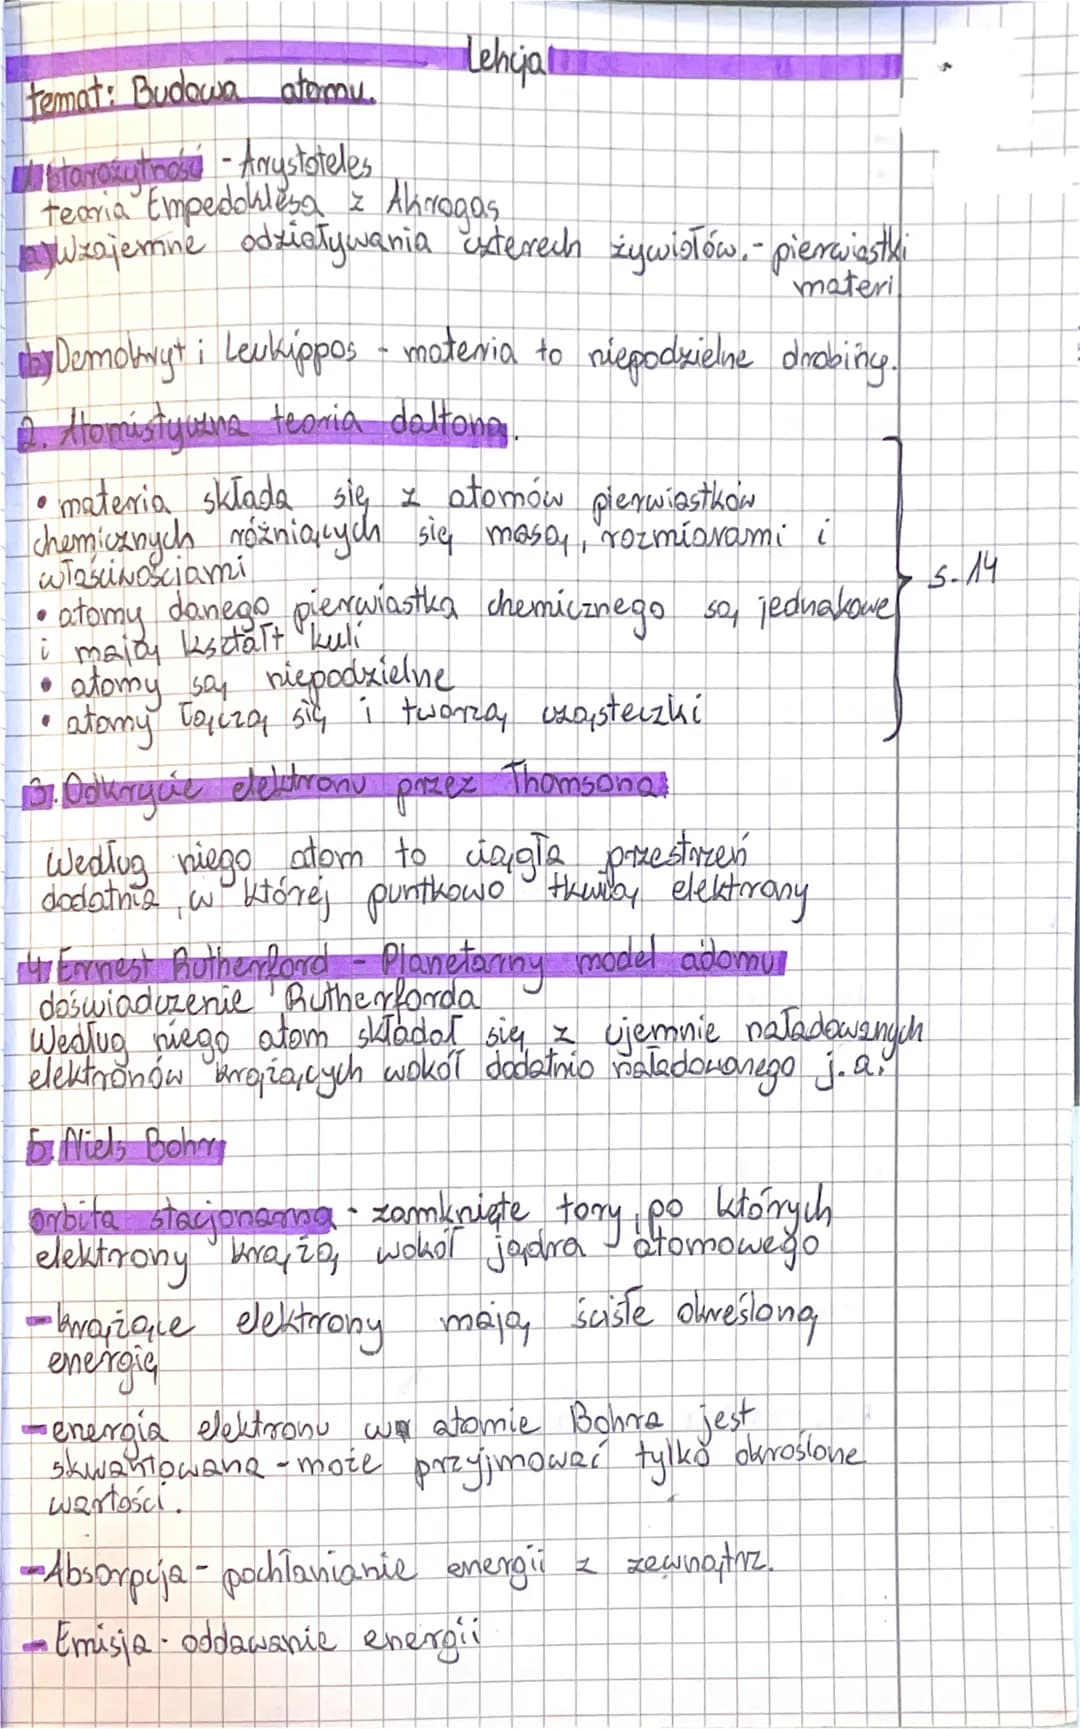 Lekcja
temat: Budowa atomu.
1. Starożytność - Arystoteles
teoria Empedoklesa z Akrogas
a) Wzajemne odziaływania czterech żywiołów. - pierwiastki
materi
b) Demokryt i Leukippos - materia to niepodzielne drobiny.
2. Atomistyczna teoria daltona.
• materia składa się z atomów pierwiastków
chemicznych różniących się masą, rozmiarami i
właściwościami
s. 14
• atomy danego pierwiastka chemicznego są jednakowe
i mają kształt kuli
• atomy są niepodzielne
• atomy łączą się i tworzą cząsteczki
3. Odkrycie elektronu przez Thomsona
Według niego atom to ciągła przestrzeń
dodatnia, w której puntkowo tkwią elektrony
4. Ernest Rutherford - Planetarny model adomu
doświadczenie Rutherforda
Według niego atom składał się z ujemnie naładowanych
elektronów krążących wokół dodatnio naładowanego j.a.
5. Niels Bohr
orbita stacjonarna - zamknięte tory, po których
elektrony krążą wokół jądra atomowego
- krążące elektrony mają ściśle określoną
energię
- energia elektronu w atomie Bohra jest
skwantowana - może przyjmować tylko okroślone
wartości.
- Absorpcja - pochłanianie energii z zewnątrz.
- Emisja - oddawanie energii